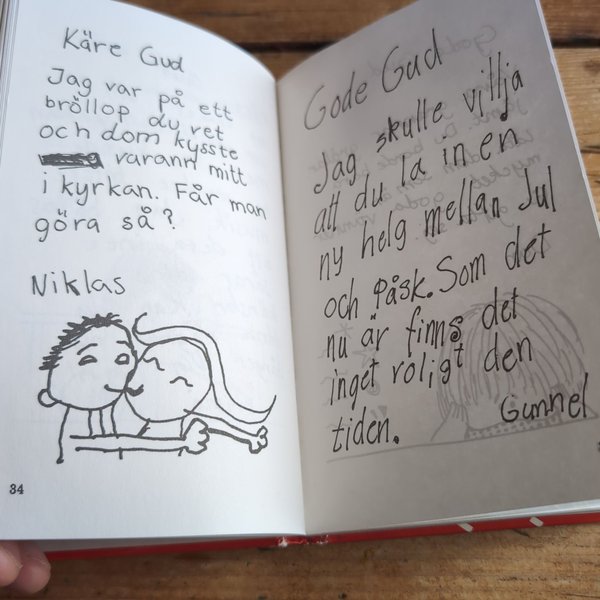 Käre Gud
Jag var på ett
bröllop du vet
och dom kysste
varann mitt
i kyrkan. Får man
göra så?
Niklas
34
Gode Gud
Jag skulle villja
att du la in en
ny helg mellan Jul
och påsk. Som det
nu är finns det
inget roligt den
tiden.
Gunnel